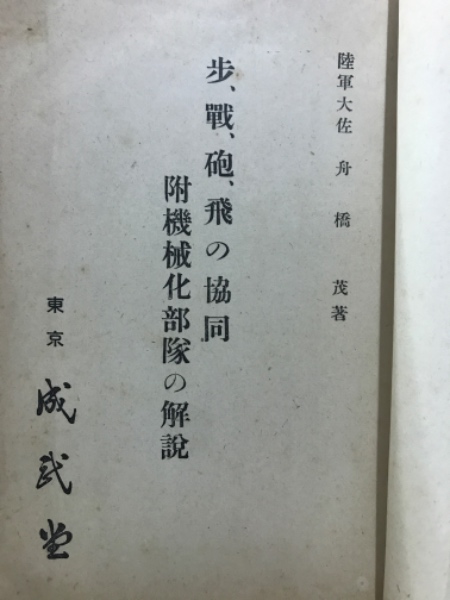 陸軍大佐 舟橋茂著
步、戰、砲、飛の協同
附機械化部隊の解說
東京 成武堂